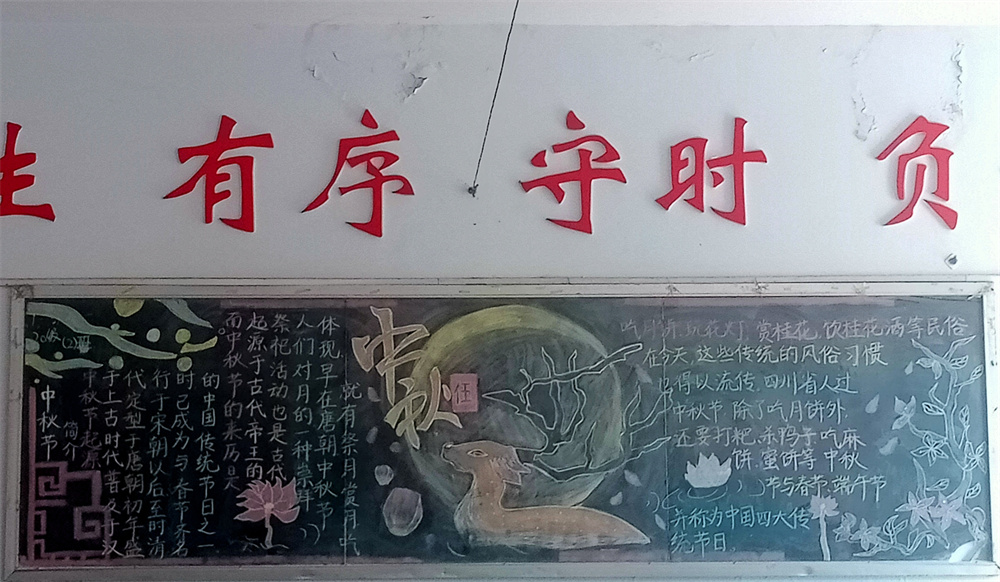 生 有序 守时 负
20级(2)班
中秋节
简介
中秋节起源
于上古时代普及于汉
代定型于唐朝初年盛
行于宋朝以后至时清
时已成为与春节齐名
的中国传统节日之一
面。中秋节的来历是
起源于古代帝王的
祭祀活动也是古代
人们对月的一种崇拜
体现,早在唐朝中秋节
就有祭月赏月吃
中秋
任
吃月饼玩花灯,赏桂花,饮桂花酒等民俗
在今天,这些传统的风俗习惯
也得以流传,四川省人过
中秋节 除了吃月饼外
还要打粑,杀鸭子,吃麻
饼,蜜饼等 中秋
节与春节,端午节
并称为中国四大传
统节日.